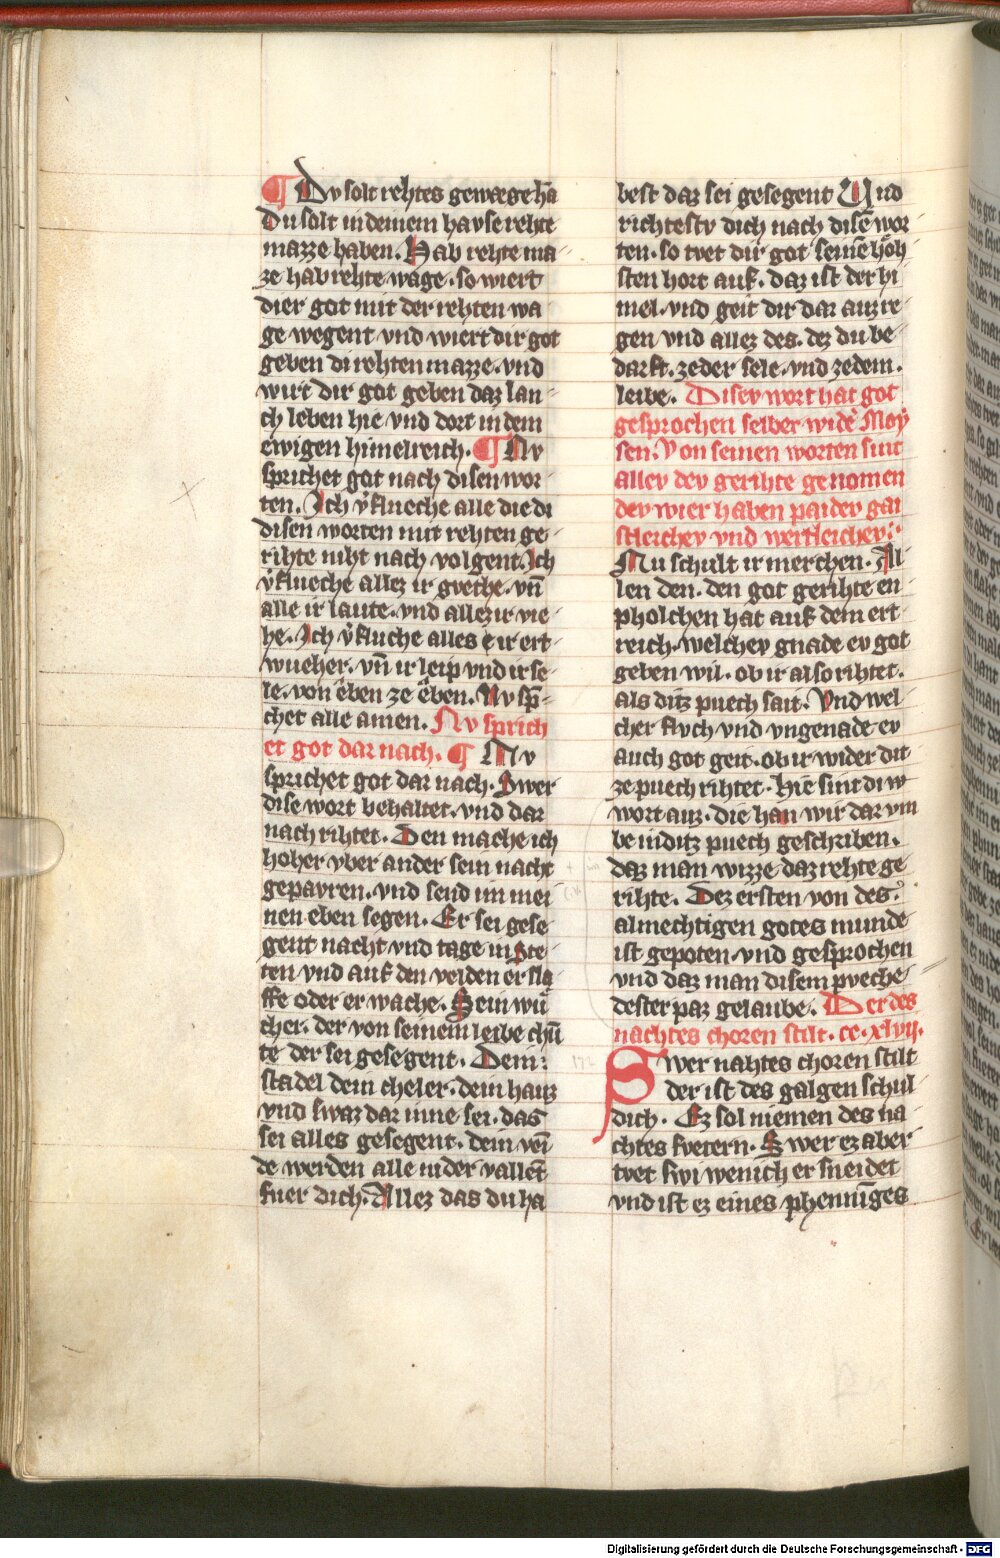 ¶ Dv solt rehtes gewæge hā
Du solt in deinem havse rehte
mazze haben. Hab rehte ma
ze hab rehte wage. so wiert
dier got mit der rehten wa
ge wegent vnd wiert dir got
geben di rehten mazze. vnd
wirt dir got geben daz lan
ch leben hie vnd dort in dem
ewigen himelreich. ¶ Nv
sprichet got nach disen wor
ten. Ich v̄flueche alle die di
disen worten mit rehten ge
rihte niht nach volgent. Ich
v̄flueche allez ir gvethe. vn̄
alle ir laute. vnd allez ir vie
he. Ich v̄fluche alles ir ert
wueher. vn̄ ir leip vnd ir se
le. von eben ze eben. Nv sp̄
chet alle amen. Nv sprich
et got dar nach. ¶ Nv
sprichet got dar nach. Swer
dise wort behaltet. vnd dar
nach rihtet. Den mache ich
hoher vber ander sein nacht
gepavren. vnd send im mei
nen eben segen. Er sei gese
gent nacht vnd tage in ste
ten vnd auf den velden er sla
ffe oder er wache. Sein wu
cher. der von seinem leibe chū
te der sei gesegent. Dem
stadel dein cheler. dein hauz
vnd swaz dar inne sei. das
sei alles gesegent. dein vei
de werden alle nider vallet
fuer dich. Allez das du ha
best daz sei gesegent Und
richtestv dich nach disē wor
ten. so tvet dir got seinē hoh
sten hort auf. daz ist der hi
mel. vnd geit dir dar auz re
gen vnd allez des. dez du be
darft. zeder sele. vnd zedem.
leibe. Disev wort hat got
gesprochen selber wider Moy
sen. Von seinen worten sint
allev dev gerihte genomen
dev wier haben paidev gai
stleichev vnd wertleichev.
Nu schult ir merchen. Al
len den. den got gerihte en
pholchen hat auf dem ert
reich. welchev gnade ev got
geben wil. ob ir also rihtet.
als ditz puech sait. Vnd wel
cher fluch vnd vngenade ev
auch got geit. ob ir wider dit
ze puech rihtet. Hie sint di w
wort auz. die han wir dar vm
be in ditz puech geschriben.
daz man wizze daz rehte ge
rihte. Dez ersten von des
almechtigen gotes munde
ist gepoten vnd gesprochen
vnd daz man disem pveche
dester paz gelaube. Der des
nachtes choren stilt. cc. xlvii.
Swer nahtes choren stilt
der ist des galgen schul
dich. Ez sol niemen des na
chtes fvetern. Swer ez aber
tvet swi wenich er sneidet
vnd ist ez eines phenniges
172
Digitalisierung gefördert durch die Deutsche Forschungsgemeinschaft - DFG